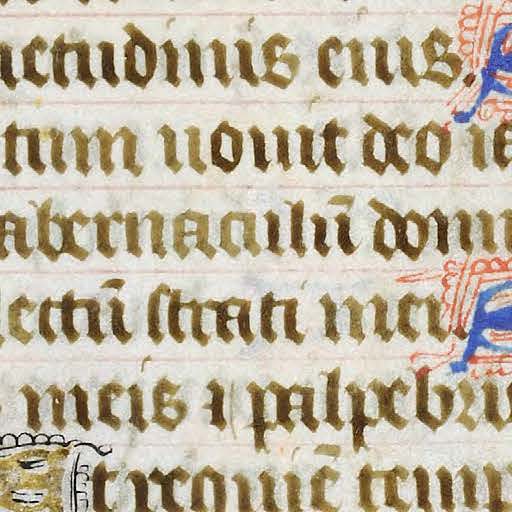 uctudinis eius.
tum uouit deo ia
abernaculū domu
lectū strati mei.
meis ⁊ palpebris
t requiē temp